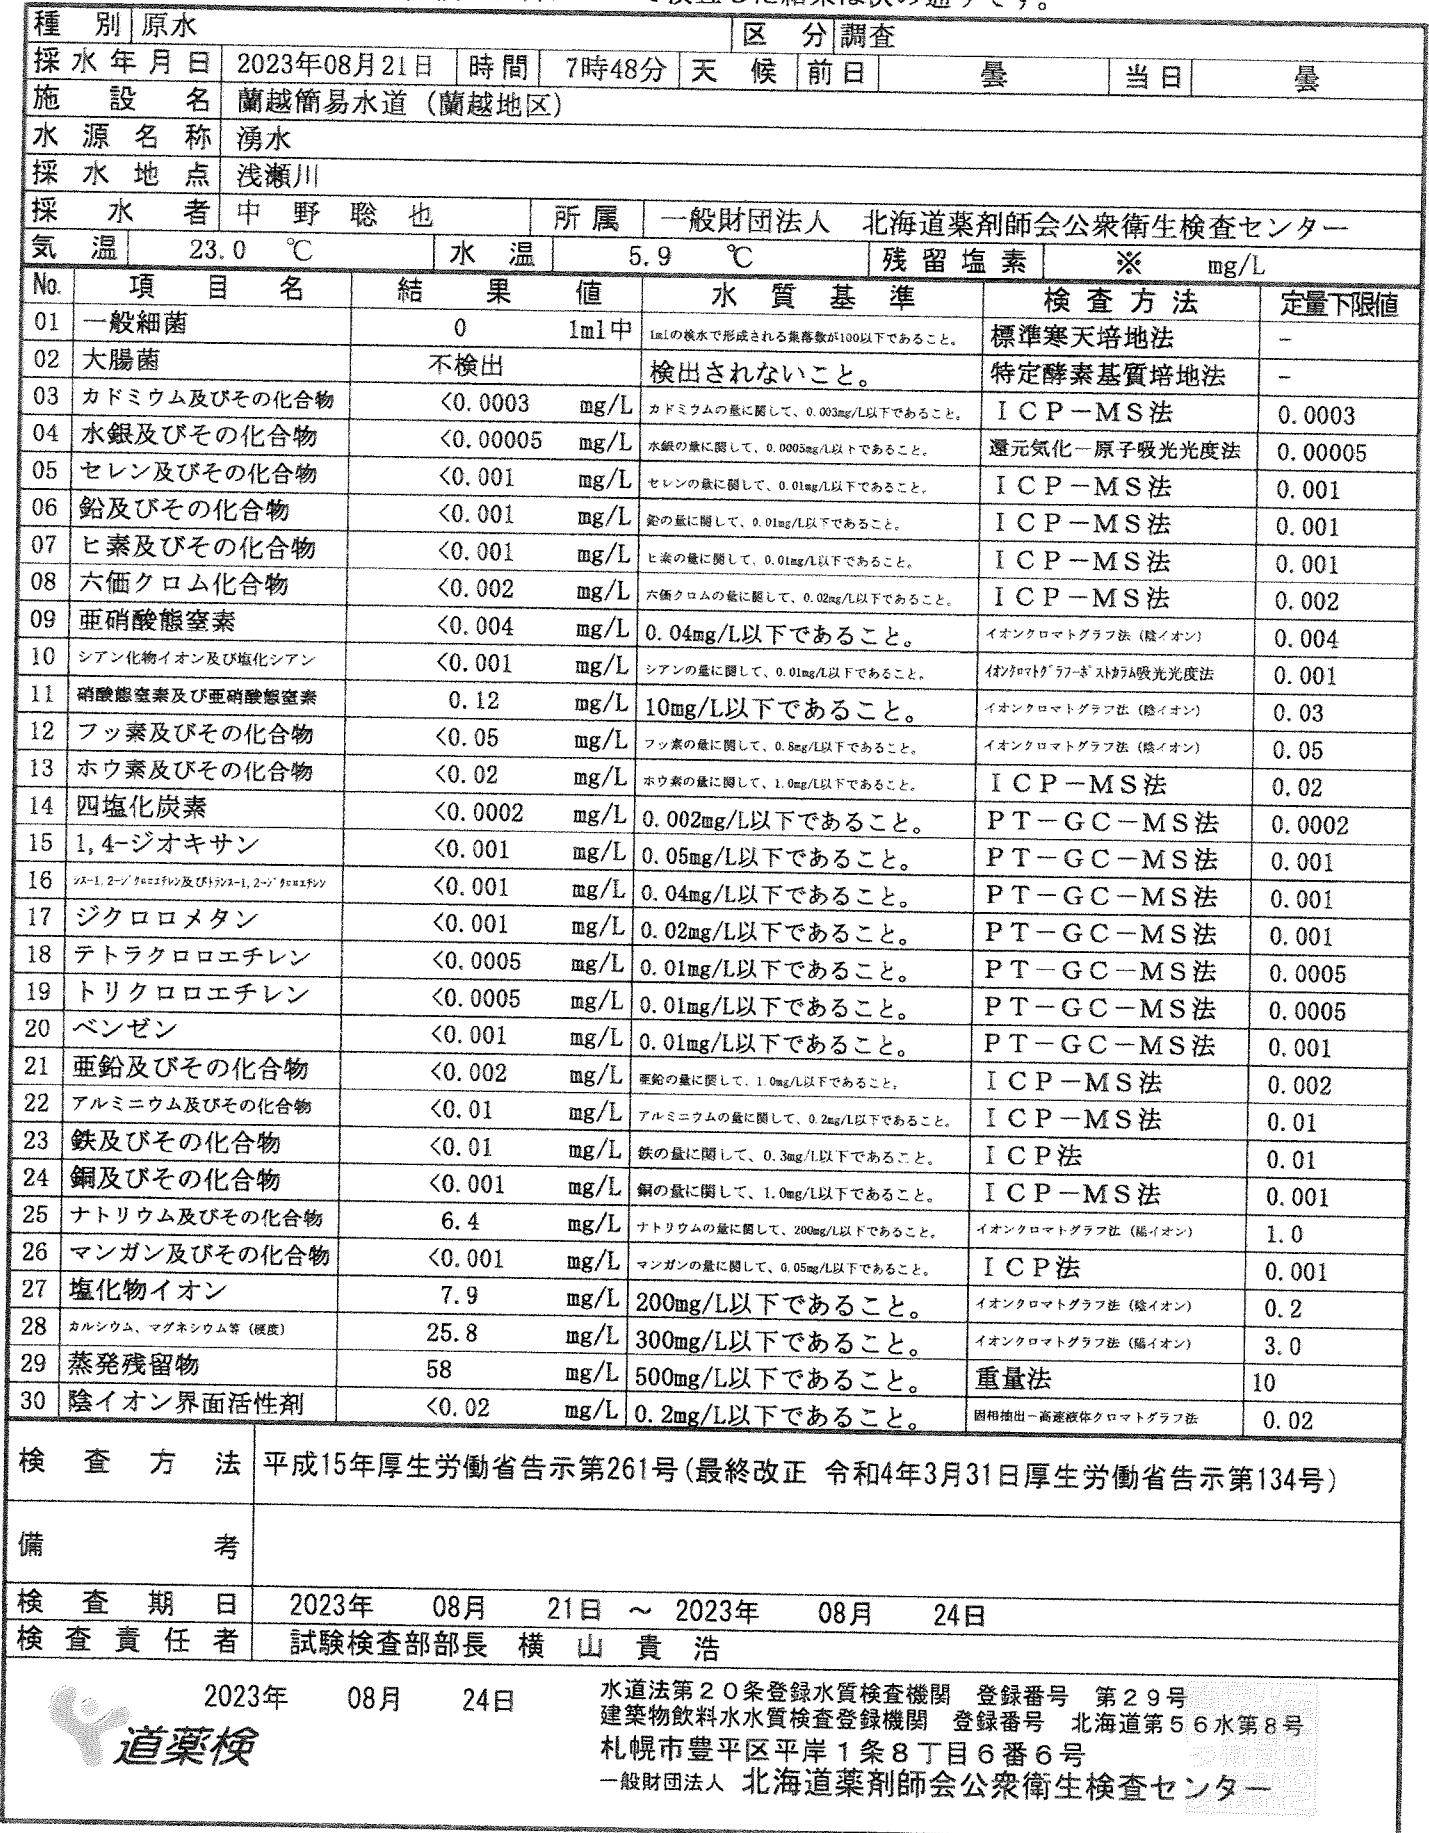 検査した結果は次の通りです。
種別 原水 区分 調査
採水年月日 2023年08月21日 時間 7時48分 天候 前日 曇 当日 曇
施設名 蘭越簡易水道（蘭越地区）
水源名称 湧水
採水地点 浅瀬川
採水者 中野聡也 所属 一般財団法人 北海道薬剤師会公衆衛生検査センター
気温 23.0 ℃ 水温 5.9 ℃ 残留塩素 ※ mg/L
No. 項目名 結果値 水質基準 検査方法 定量下限値
01 一般細菌 0 1ml中 1mlの検水で形成される集落数が100以下であること。 標準寒天培地法 －
02 大腸菌 不検出 検出されないこと。 特定酵素基質培地法 －
03 カドミウム及びその化合物 <0.0003 mg/L カドミウムの量に関して、0.003mg/L以下であること。 ＩＣＰ－ＭＳ法 0.0003
04 水銀及びその化合物 <0.00005 mg/L 水銀の量に関して、0.0005mg/L以下であること。 還元気化－原子吸光光度法 0.00005
05 セレン及びその化合物 <0.001 mg/L セレンの量に関して、0.01mg/L以下であること。 ＩＣＰ－ＭＳ法 0.001
06 鉛及びその化合物 <0.001 mg/L 鉛の量に関して、0.01mg/L以下であること。 ＩＣＰ－ＭＳ法 0.001
07 ヒ素及びその化合物 <0.001 mg/L ヒ素の量に関して、0.01mg/L以下であること。 ＩＣＰ－ＭＳ法 0.001
08 六価クロム化合物 <0.002 mg/L 六価クロムの量に関して、0.02mg/L以下であること。 ＩＣＰ－ＭＳ法 0.002
09 亜硝酸態窒素 <0.004 mg/L 0.04mg/L以下であること。 イオンクロマトグラフ法（陰イオン） 0.004
10 シアン化物イオン及び塩化シアン <0.001 mg/L シアンの量に関して、0.01mg/L以下であること。 ｲｵﾝｸﾛﾏﾄｸﾞﾗﾌｰﾎﾟｽﾄｶﾗﾑ吸光光度法 0.001
11 硝酸態窒素及び亜硝酸態窒素 0.12 mg/L 10mg/L以下であること。 イオンクロマトグラフ法（陰イオン） 0.03
12 フッ素及びその化合物 <0.05 mg/L フッ素の量に関して、0.8mg/L以下であること。 イオンクロマトグラフ法（陰イオン） 0.05
13 ホウ素及びその化合物 <0.02 mg/L ホウ素の量に関して、1.0mg/L以下であること。 ＩＣＰ－ＭＳ法 0.02
14 四塩化炭素 <0.0002 mg/L 0.002mg/L以下であること。 ＰＴ－ＧＣ－ＭＳ法 0.0002
15 1,4-ジオキサン <0.001 mg/L 0.05mg/L以下であること。 ＰＴ－ＧＣ－ＭＳ法 0.001
16 ｼｽｰ1,2ｰｼﾞｸﾛﾛｴﾁﾚﾝ及びﾄﾗﾝｽｰ1,2ｰｼﾞｸﾛﾛｴﾁﾚﾝ <0.001 mg/L 0.04mg/L以下であること。 ＰＴ－ＧＣ－ＭＳ法 0.001
17 ジクロロメタン <0.001 mg/L 0.02mg/L以下であること。 ＰＴ－ＧＣ－ＭＳ法 0.001
18 テトラクロロエチレン <0.0005 mg/L 0.01mg/L以下であること。 ＰＴ－ＧＣ－ＭＳ法 0.0005
19 トリクロロエチレン <0.0005 mg/L 0.01mg/L以下であること。 ＰＴ－ＧＣ－ＭＳ法 0.0005
20 ベンゼン <0.001 mg/L 0.01mg/L以下であること。 ＰＴ－ＧＣ－ＭＳ法 0.001
21 亜鉛及びその化合物 <0.002 mg/L 亜鉛の量に関して、1.0mg/L以下であること。 ＩＣＰ－ＭＳ法 0.002
22 アルミニウム及びその化合物 <0.01 mg/L アルミニウムの量に関して、0.2mg/L以下であること。 ＩＣＰ－ＭＳ法 0.01
23 鉄及びその化合物 <0.01 mg/L 鉄の量に関して、0.3mg/L以下であること。 ＩＣＰ法 0.01
24 銅及びその化合物 <0.001 mg/L 銅の量に関して、1.0mg/L以下であること。 ＩＣＰ－ＭＳ法 0.001
25 ナトリウム及びその化合物 6.4 mg/L ナトリウムの量に関して、200mg/L以下であること。 イオンクロマトグラフ法（陽イオン） 1.0
26 マンガン及びその化合物 <0.001 mg/L マンガンの量に関して、0.05mg/L以下であること。 ＩＣＰ法 0.001
27 塩化物イオン 7.9 mg/L 200mg/L以下であること。 イオンクロマトグラフ法（陰イオン） 0.2
28 カルシウム、マグネシウム等（硬度） 25.8 mg/L 300mg/L以下であること。 イオンクロマトグラフ法（陽イオン） 3.0
29 蒸発残留物 58 mg/L 500mg/L以下であること。 重量法 10
30 陰イオン界面活性剤 <0.02 mg/L 0.2mg/L以下であること。 固相抽出－高速液体クロマトグラフ法 0.02
検査方法 平成15年厚生労働省告示第261号(最終改正 令和4年3月31日厚生労働省告示第134号)
備考
検査期日 2023年 08月 21日 ～ 2023年 08月 24日
検査責任者 試験検査部部長 横山貴浩
2023年 08月 24日
道薬検
水道法第２０条登録水質検査機関 登録番号 第２９号
建築物飲料水水質検査登録機関 登録番号 北海道第５６水第８号
札幌市豊平区平岸１条８丁目６番６号
一般財団法人 北海道薬剤師会公衆衛生検査センター